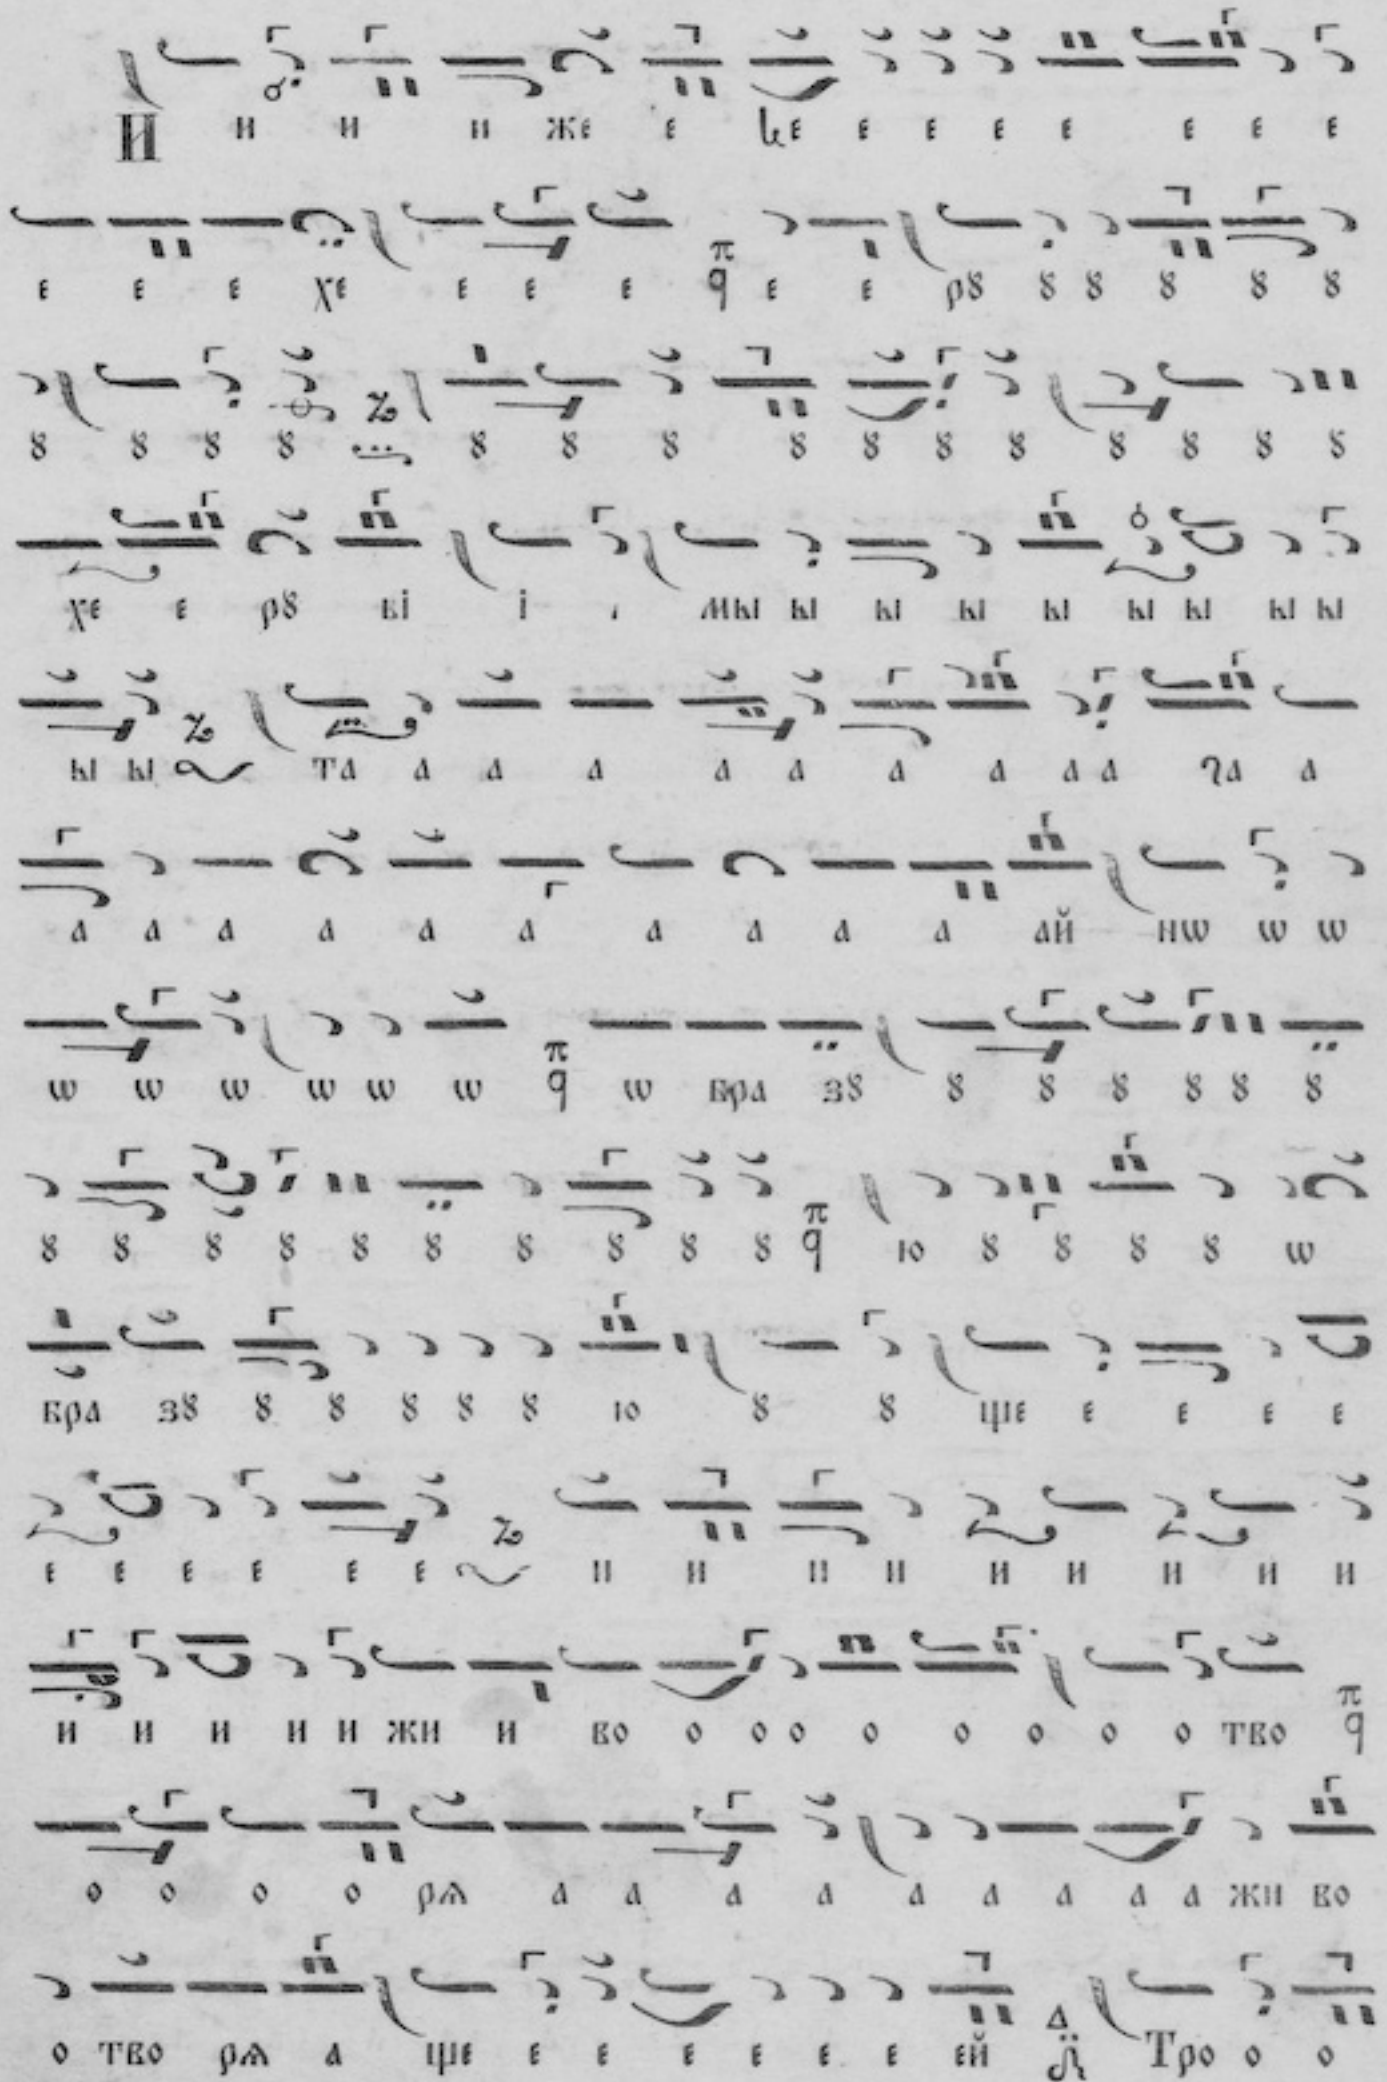 И и и и же е ꙗе е е е е е е е
е е е хе е е е π q е е рꙋ ꙋ ꙋ ꙋ ꙋ ꙋ
ꙋ ꙋ ꙋ ꙋ ꙋ ꙋ ꙋ ꙋ ꙋ ꙋ ꙋ ꙋ ꙋ ꙋ ꙋ
хе е рꙋ ві і мы ы ы ы ы ы ы ы ы
ы ы та а а а а а а а а а а
а а а а а а а а а а ай нѡ ѡ ѡ
ѡ ѡ ѡ ѡ ѡ ѡ π q ѡ бра зꙋ ꙋ ꙋ ꙋ ꙋ ꙋ ꙋ
ꙋ ꙋ ꙋ ꙋ ꙋ ꙋ ꙋ ꙋ ꙋ ꙋ π q ю ꙋ ꙋ ꙋ ꙋ ѡ
бра зꙋ ꙋ ꙋ ꙋ ꙋ ꙋ ю ꙋ ꙋ ще е е е е
е е е е е е и и и и и и и и и
и и и и и жи и во о о о о о о о о тво π q
о о о о рѧ а а а а а а а а а жи во
о тво рѧ а ще е е е е е е ей Δ Тро о о